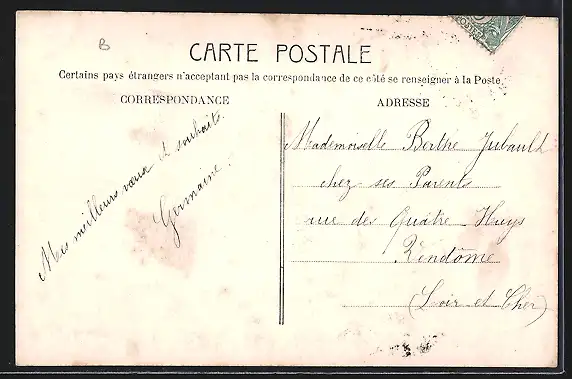 B
CARTE POSTALE
Certains pays étrangers n'acceptant pas la correspondance de ce côté se renseigner à la Poste
CORRESPONDANCE
Mes meilleurs vœux et souhaits.
Germaine.
ADRESSE
Mademoiselle Berthe Jubault
chez ses Parents
rue des Quatre-Huys
Vendôme
(Loir-et-Cher)